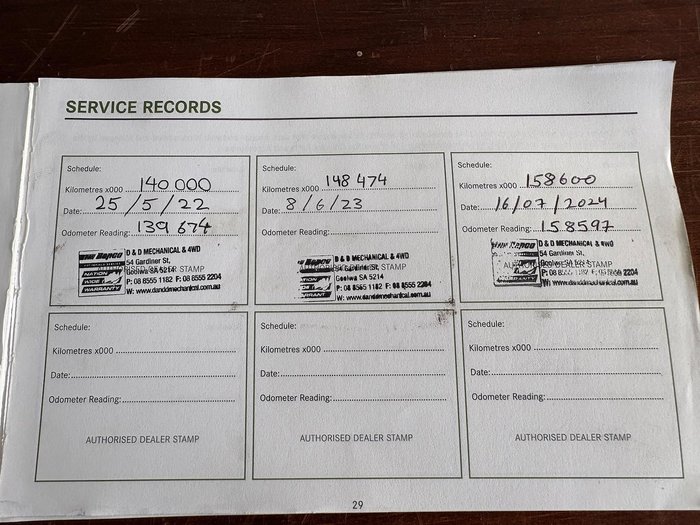 SERVICE RECORDS
Schedule:
Kilometres x000 140 000
Date: 25/5/22
Odometer Reading: 139 674
Repco
D & D MECHANICAL & 4WD
54 Gardiner St,
Goolwa SA 5214
AUTHORISED DEALER STAMP
NATION WIDE WARRANTY
P: 08 8555 1182 F: 08 8555 2204
W: www.danddmechanical.com.au
Schedule:
Kilometres x000 148 474
Date: 8/6/23
Odometer Reading:
Repco
D & D MECHANICAL & 4WD
54 Gardiner St,
Goolwa SA 5214
STAMP
WARRANTY
P: 08 8555 1182 F: 08 8555 2204
W: www.danddmechanical.com.au
Schedule:
Kilometres x000 158600
Date: 16/07/2024
Odometer Reading: 158597
Repco
D & D MECHANICAL & 4WD
54 Gardiner St,
Goolwa SA 5214
STAMP
P: 08 8555 1182 F: 08 8555 2204
W: www.danddmechanical.com.au
Schedule:
Kilometres x000
Date:
Odometer Reading:
AUTHORISED DEALER STAMP
Schedule:
Kilometres x000
Date:
Odometer Reading:
AUTHORISED DEALER STAMP
Schedule:
Kilometres x000
Date:
Odometer Reading:
AUTHORISED DEALER STAMP
29